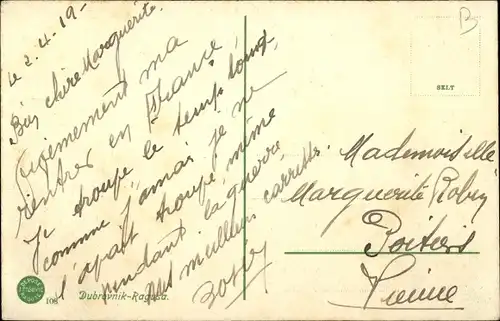 le 2.4.19-
Bien chère Marguerite.
ma
rentrée en France
Je trouve le temps long,
comme jamais je ne
l'avait trouvé même
pendant la guerre
Mes meilleurs caresses.
Mademoiselle
Marguerite Robin
Poitiers
Vienne
B
SELT
108
Dubrovnik-Ragusa.